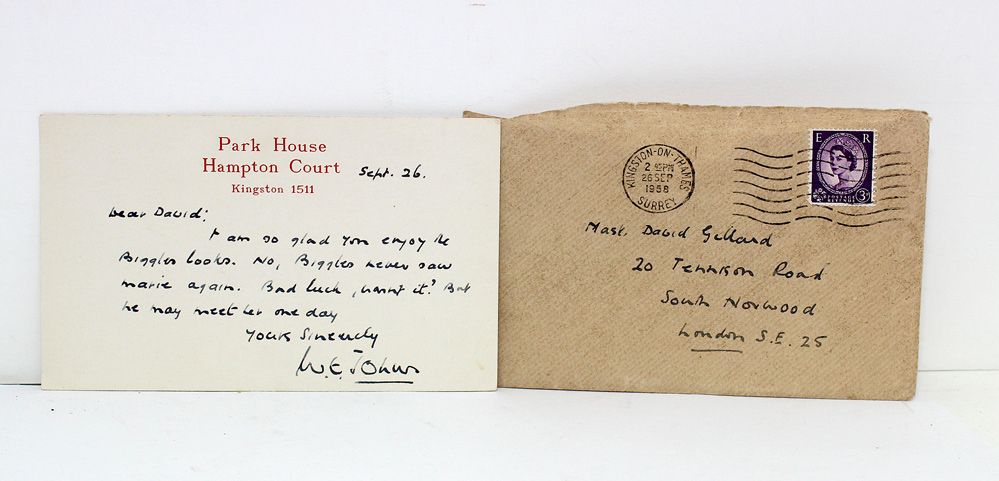 Park House
Hampton Court
Kingston 1511
Sept. 26.
Dear David;
I am so glad you enjoy the
Biggles books. No, Biggles never saw
marie again. Bad luck, wasn't it? But
he may meet her one day
Yours Sincerely
W.E. Johns
KINGSTON-ON-THAMES
2 PM
26 SEP
1958
SURREY
E R
POSTAGE
REVENUE
3D
Mast. David Gillard
20 Tennison Road
South Norwood
London S.E. 25